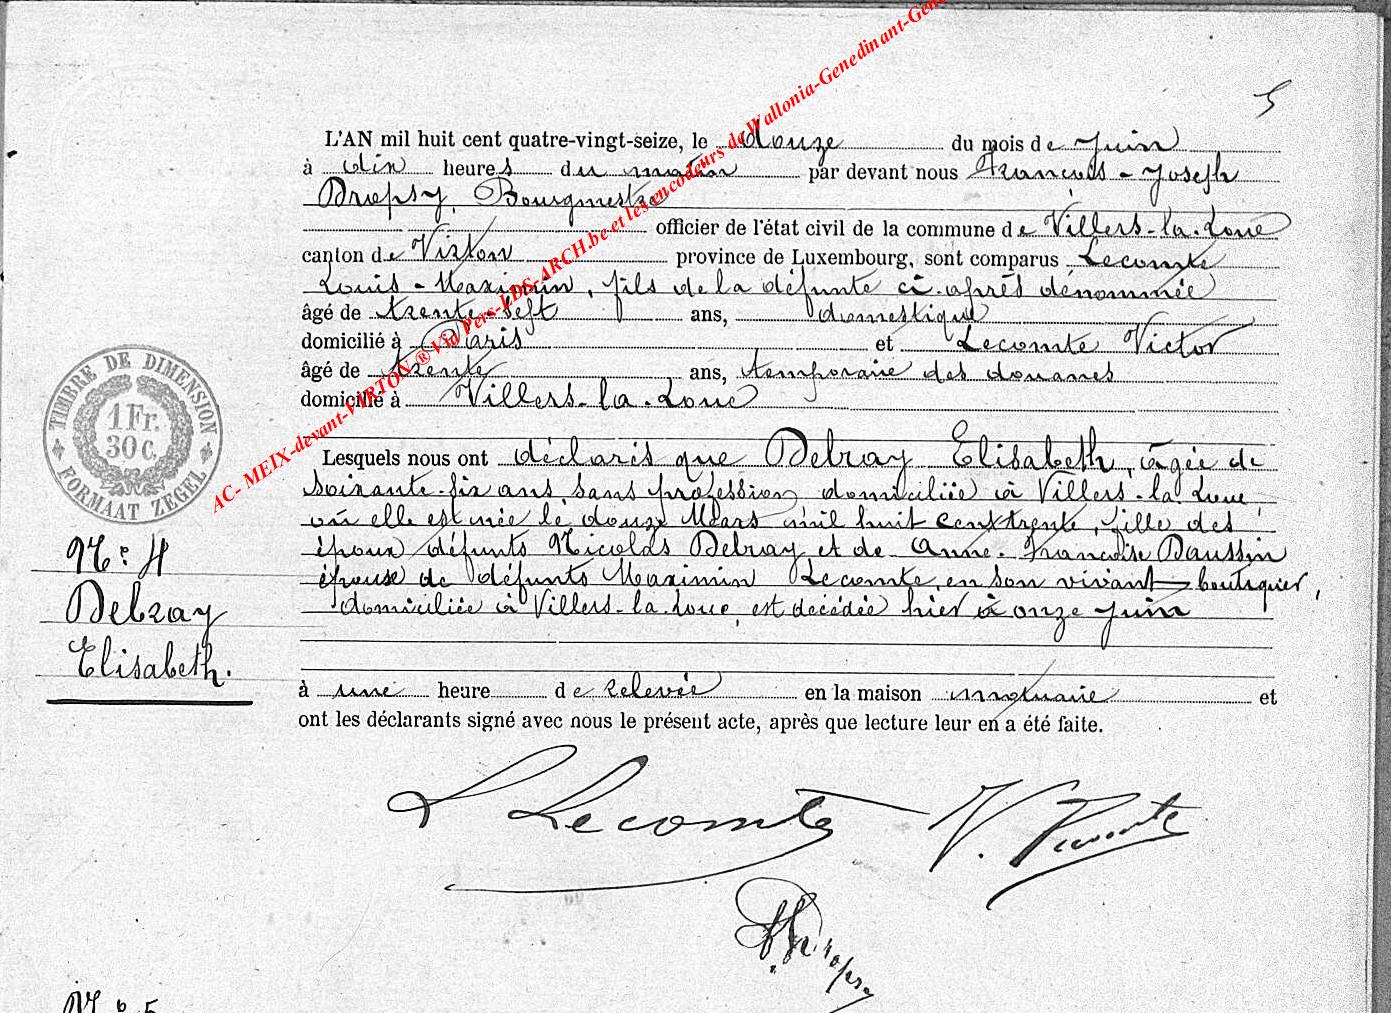 5
L'AN mil huit cent quatre-vingt-seize, le douze du mois de Juin
à dix heures du matin par devant nous François-Joseph
Dropsy, Bourgmestre
officier de l'état civil de la commune de Villers-la-Loue
canton de Virton province de Luxembourg, sont comparus Lecomte
Louis-Maximin, fils de la défunte ci-après dénommée
âgé de trente-sept ans, domestique
domicilié à Paris et Lecomte Victor
âgé de trente ans, temporaire des douanes
domicilié à Villers-la-Loue
Lesquels nous ont déclarés que Debray Elisabeth, âgée de
soixante-six ans, sans profession, domiciliée à Villers-la-Loue,
où elle est née le douze Mars mil huit cent trente, fille des
époux défunts Nicolas Debray et de Anne-Françoise Daussin
épouse de défunts Maximin Lecomte, en son vivant boutiquier,
domiciliée à Villers-la-Loue, est décédée hier à onze Juin
à une heure de relevée en la maison mortuaire et
ont les déclarants signé avec nous le présent acte, après que lecture leur en a été faite.
TIMBRE DE DIMENSION
1 Fr.
30 C.
FORMAAT ZEGEL
N° 4
Debray
Elisabeth.
L Lecomte V. Lecomte
Dropsy
N° 5
AC- MEIX-devant-VIRTON ® Via Pers-LDS-ARCH.be et les encodeurs de Wallonia-Genedinant-Gene